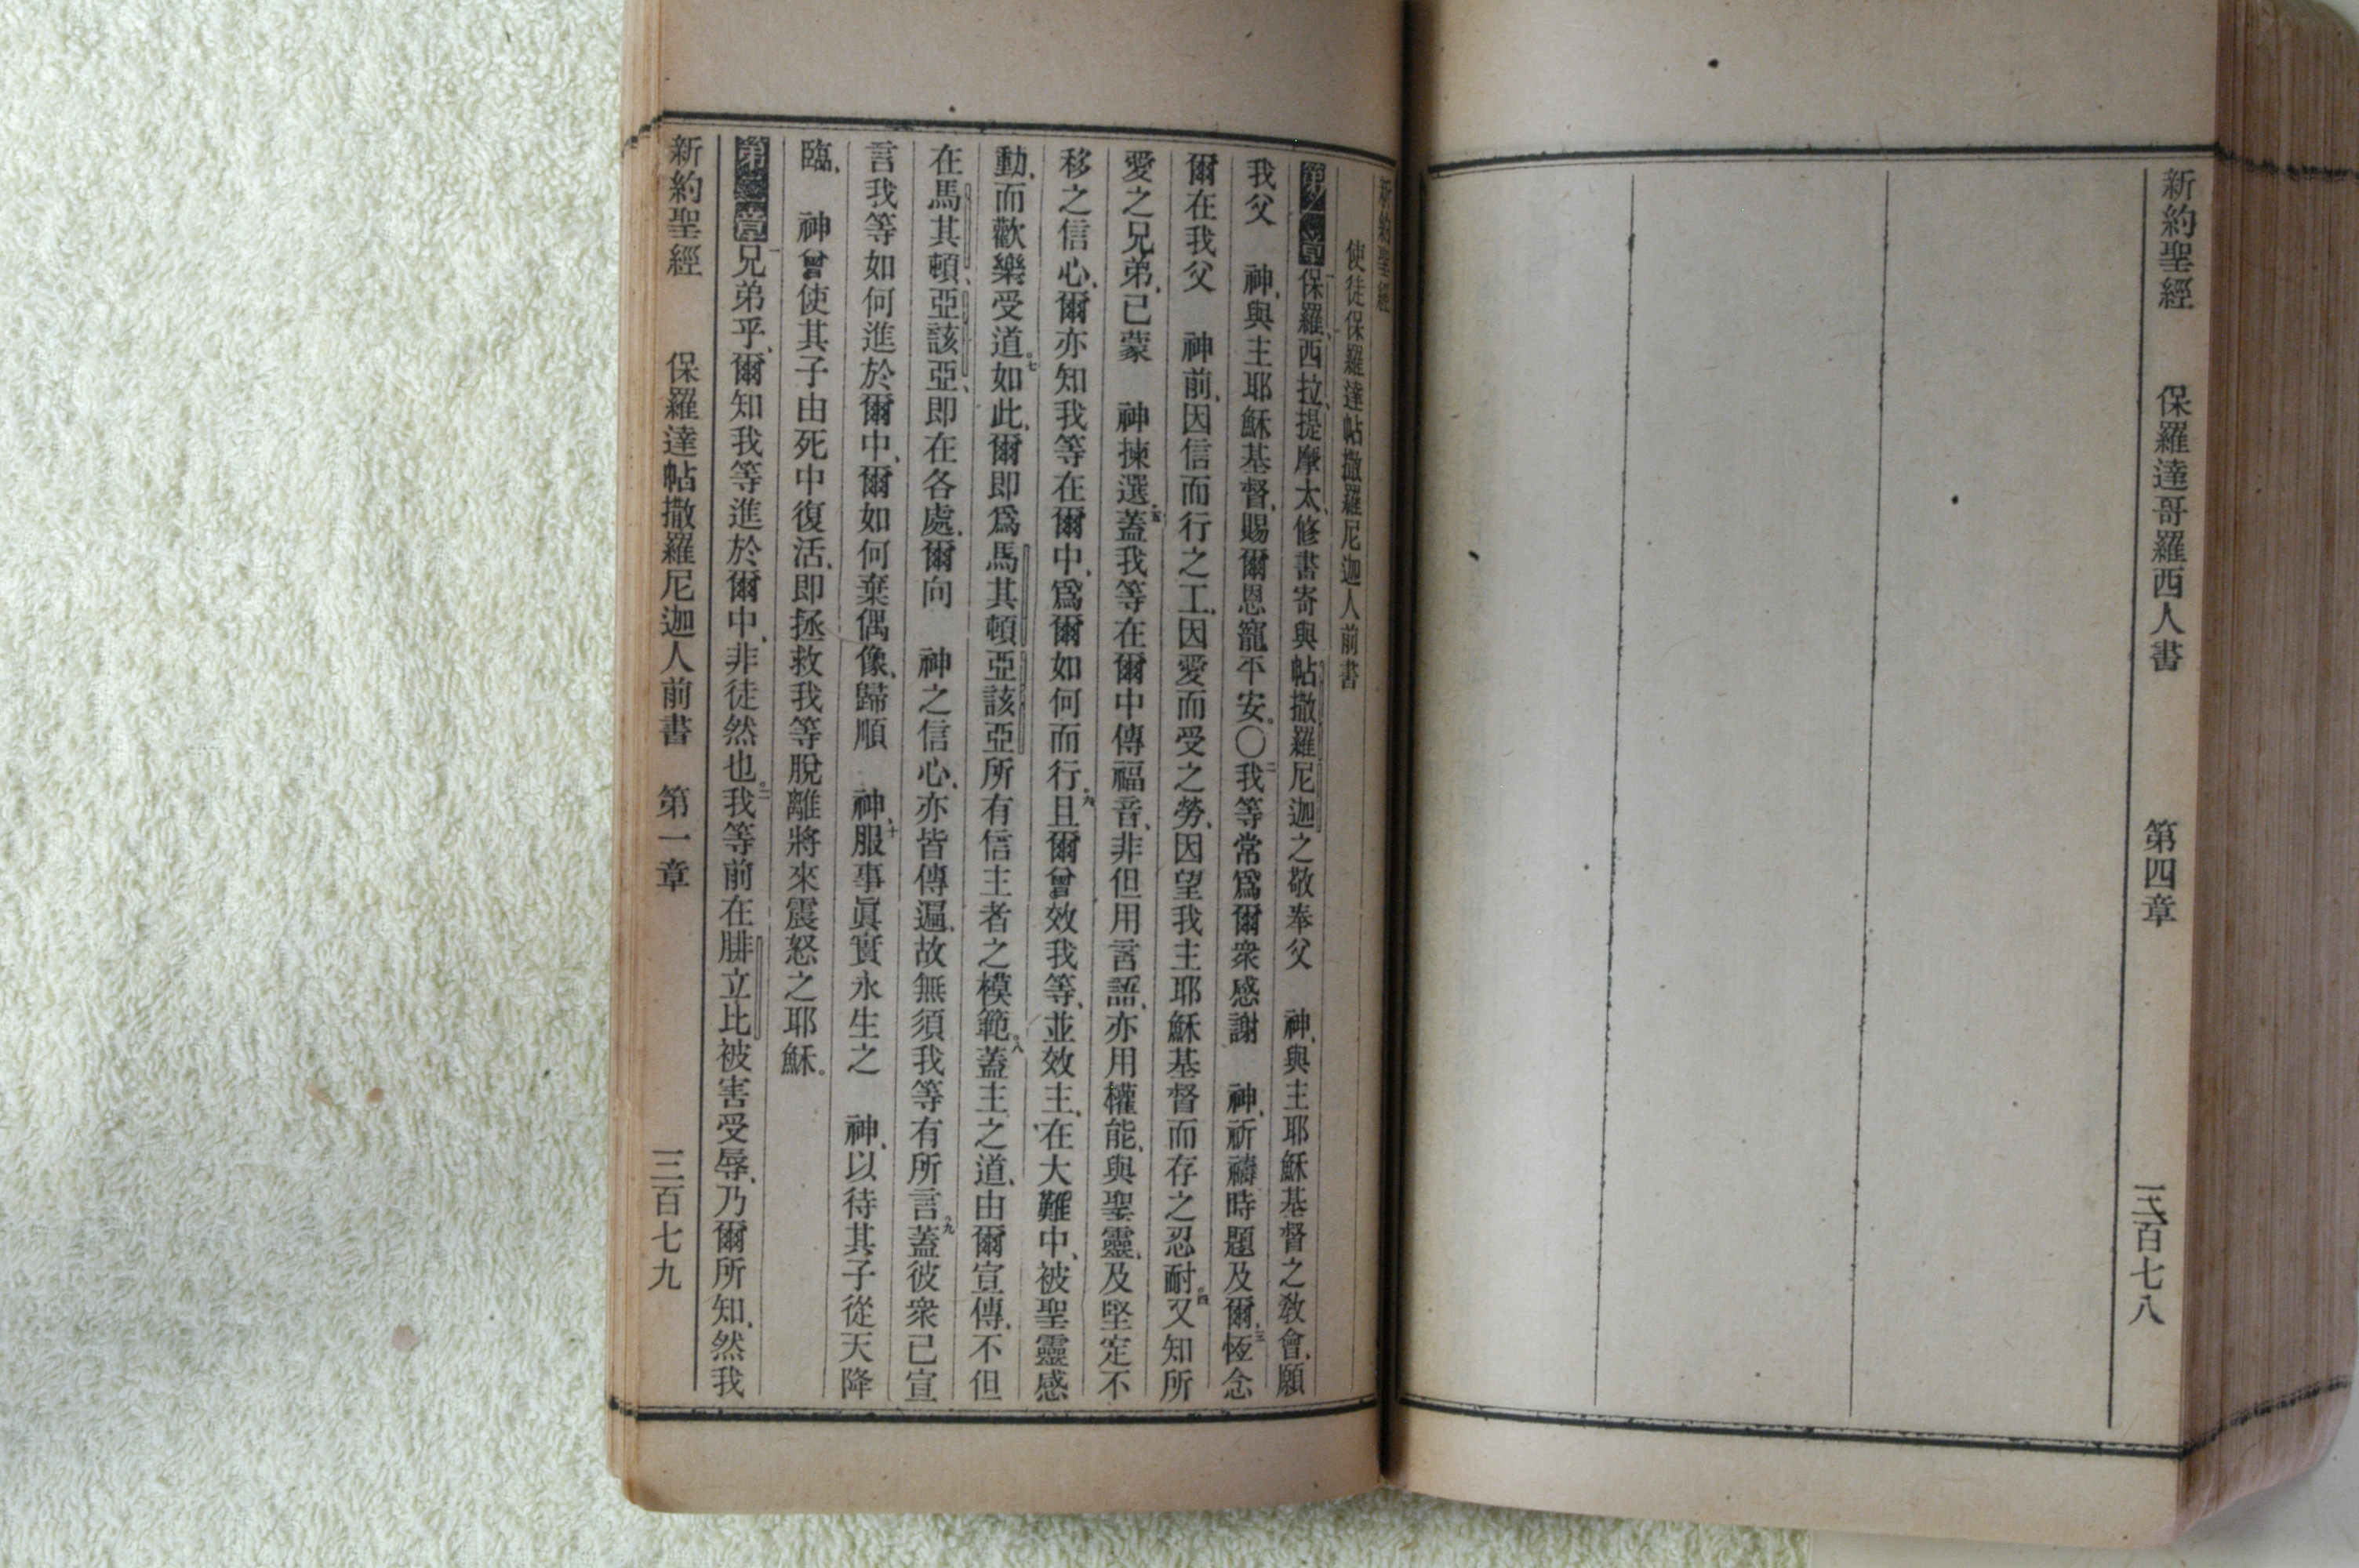 新約聖經 保羅達哥羅西人書 第四章 三百七八
新約聖經
使徒保羅達帖撒羅尼迦人前書
第一章一保羅、西拉、提摩太、修書寄與帖撒羅尼迦之敬奉父 神、與主耶穌基督之教會、願
我父 神、與主耶穌基督、賜爾恩寵平安。〇二我等常爲爾衆感謝 神、祈禱時題及爾、三恆念
爾在我父 神前、因信而行之工、因愛而受之勞、因望我主耶穌基督而存之忍耐。四又知所
愛之兄弟、已蒙 神揀選、五蓋我等在爾中傳福音、非但用言語、亦用權能、與聖靈、及堅定不
移之信心、爾亦知我等在爾中、爲爾如何而行。六且爾曾效我等、並效主、在大難中、被聖靈感
動、而歡樂受道。七如此、爾即爲馬其頓亞該亞所有信主者之模範。八蓋主之道、由爾宣傳、不但
在馬其頓、亞該亞、即在各處、爾向 神之信心、亦皆傳遍、故無須我等有所言、九蓋彼衆已宣
言我等如何進於爾中、爾如何棄偶像、歸順 神、十服事眞實永生之 神、以待其子從天降
臨、 神曾使其子由死中復活、即拯救我等脫離將來震怒之耶穌。
第二章一兄弟乎、爾知我等進於爾中、非徒然也。二我等前在腓立比被害受辱、乃爾所知、然我
新約聖經 保羅達帖撒羅尼迦人前書 第一章 三百七九